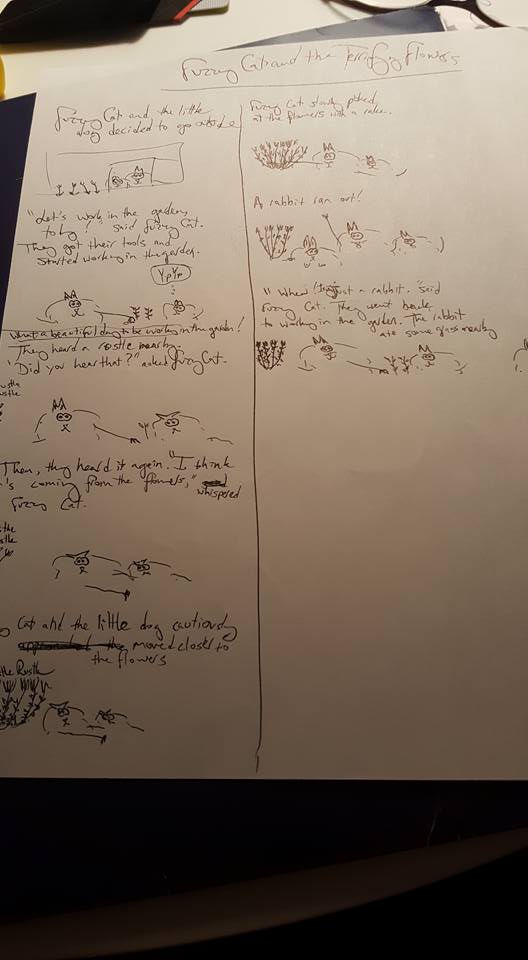 Fuzzy Cat and the Terrifying Flowers
Fuzzy Cat and the little
dog decided to go outside
"Let's work in the garden,
today!" said Fuzzy Cat.
They got their tools and
started working in the garden.
Yip Yip
What a beautiful day to be working in the garden!
They heard a rustle nearby.
"Did you hear that?" asked Fuzzy Cat.
Then, they heard it again. "I think
's coming from the flowers,"
whispered
Fuzzy Cat.
Cat and the little dog cautiously
moved closer to
the flowers
Rustle
Fuzzy Cat slowly poked
at the flowers with a rake.
A rabbit ran out!
"Whew! Just a rabbit." said
Fuzzy Cat. They went back
to working in the garden. The rabbit
ate some grass nearby